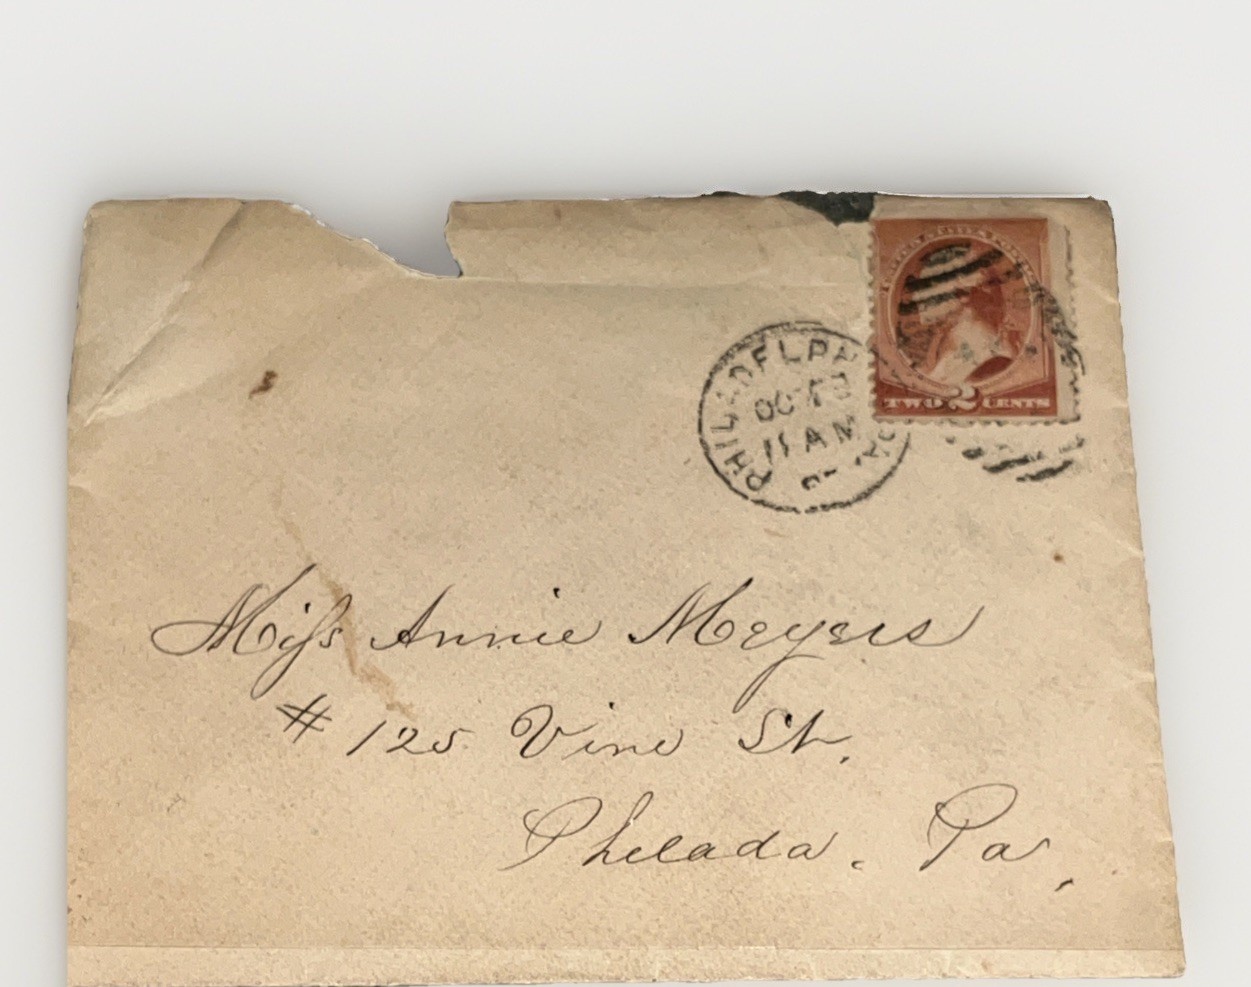 UNITED STATES POSTAGE
TWO 2 CENTS
PHILADELPH PA.
OCT
11 AM
Miss Annie Meyers
# 125 Vine St.
Philada. Pa,